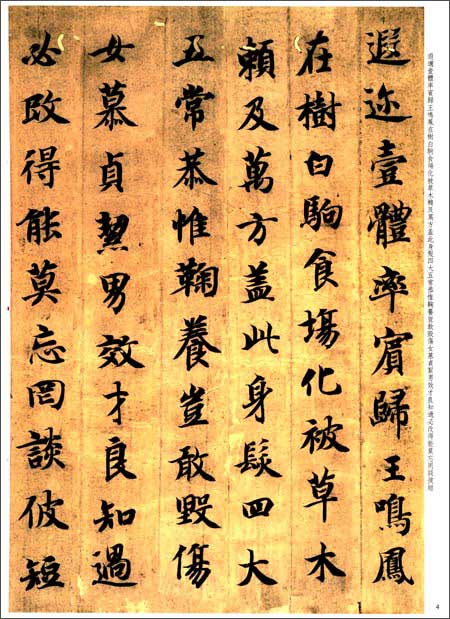 遐邇壹體率賓歸王鳴鳳在樹白駒食場化被草木賴及萬方蓋此身髮四大五常恭惟鞠養豈敢毀傷女慕貞絜男效才良知過必改得能莫忘罔談彼短
遐迩壹體率賓歸王鳴鳳
在樹白駒食塲化被草木
賴及萬方蓋此身髮四大
五常恭惟鞠養豈敢毀傷
女慕貞絜男效才良知過
必改得能莫忘罔談彼短
4